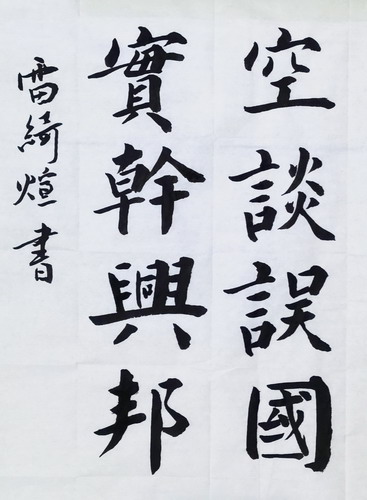 空談誤國
實幹興邦
雷綺煊書